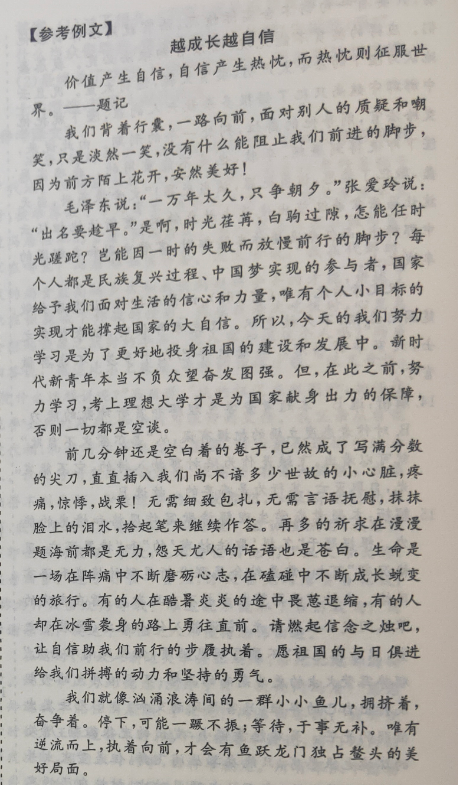 【参考例文】
越成长越自信
价值产生自信,自信产生热忱,而热忱则征服世
界。——题记
我们背着行囊,一路向前,面对别人的质疑和嘲
笑,只是淡然一笑,没有什么能阻止我们前进的脚步,
因为前方陌上花开,安然美好!
毛泽东说:“一万年太久,只争朝夕。”张爱玲说:
“出名要趁早。”是啊,时光荏苒,白驹过隙,怎能任时
光蹉跎?岂能因一时的失败而放慢前行的脚步?每
个人都是民族复兴过程、中国梦实现的参与者,国家
给予我们面对生活的信心和力量,唯有个人小目标的
实现才能撑起国家的大自信。所以,今天的我们努力
学习是为了更好地投身祖国的建设和发展中。新时
代新青年本当不负众望奋发图强。但,在此之前,努
力学习,考上理想大学才是为国家献身出力的保障,
否则一切都是空谈。
前几分钟还是空白着的卷子,已然成了写满分数
的尖刀,直直插入我们尚不谙多少世故的小心脏,疼
痛,惊悸,战栗!无需细致包扎,无需言语抚慰,抹抹
脸上的泪水,拾起笔来继续作答。再多的祈求在漫漫
题海前都是无力,怨天尤人的话语也是苍白。生命是
一场在阵痛中不断磨砺心志,在磕碰中不断成长蜕变
的旅行。有的人在酷暑炎炎的途中畏葸退缩,有的人
却在冰雪袭身的路上勇往直前。请燃起信念之烛吧,
让自信助我们前行的步履执着。愿祖国的与日俱进
给我们拼搏的动力和坚持的勇气。
我们就像汹涌浪涛间的一群小小鱼儿,拥挤着,
奋争着。停下,可能一蹶不振;等待,于事无补。唯有
逆流而上,执着向前,才会有鱼跃龙门独占鳌头的美
好局面。